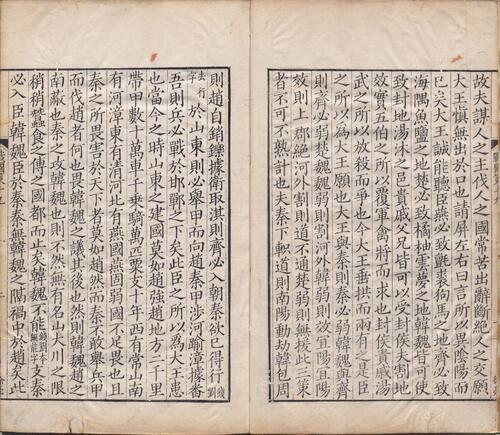 故夫謀人之主伐人之國常苦出辭斷絕人之交願
大王慎無出於口也請屏左右曰言所以異陰陽而
已矣大王誠能聽臣燕必致氈裘狗馬之地齊必致
海隅魚鹽之地楚必致橘柚雲夢之地韓魏皆可使
致封地湯沐之邑貴戚父兄皆可以受封侯夫割地
效實五伯之所以覆軍禽將而求也封侯貴戚湯
武之所以放殺而爭也今大王垂拱而兩有之是臣
之所以為大王願也大王與秦則秦必弱韓魏與齊
則齊必弱楚魏魏弱則割河外韓弱則效宜陽宜陽
效則上郡絕河外割則道不通楚弱則無援此三策
者不可不熟計也夫秦下軹道則南陽動劫韓包周
則趙自銷鑠據衛取淇則齊必入朝秦欲已得行錢劉
去行字於山東則必舉甲而向趙秦甲涉河踰漳據番
吾則兵必戰於邯鄲之下矣此臣之所以為大王患
也當今之時山東之建國莫如趙強趙地方二千里
帶甲數十萬車千乘騎萬匹粟支十年西有常山南
有河漳東有清河北有燕國燕固弱國不足畏也且
秦之所畏害於天下者莫如趙然而秦不敢舉兵甲
而伐趙者何也畏韓魏之議其後也然則韓魏趙之
南蔽也秦之攻韓魏也則不然無有名山大川之限
稍稍蠶食之傅之國都而止矣韓魏不能錢劉本無能字支秦
必入臣韓魏臣於秦秦無韓魏之隔禍中於趙矣此